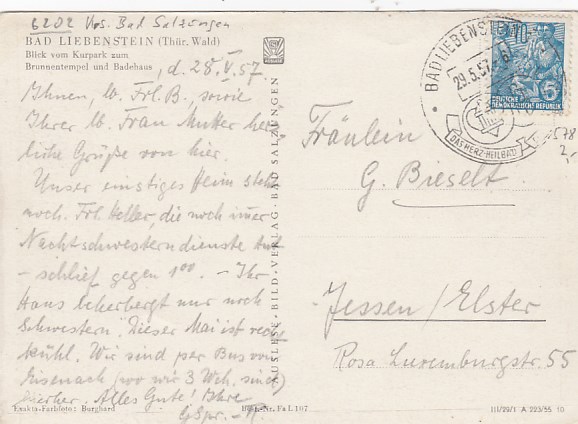 6202 Krs. Bad Salzungen
BAD LIEBENSTEIN (Thür. Wald)
Blick vom Kurpark zum
Brunnentempel und Badehaus
, d. 28.V.57.
Ihnen, lb. Frl. B., sowie
Ihrer lb. Frau Mutter herz
liche Grüße von hier.
Unser einstiges Heim steht
noch. Frl. Heller, die noch immer
Nachtschwesterndienste tut
- schlief gegen 1°°. - Ihr
Haus beherbergt nur noch
Schwestern. Dieser Mai ist recht
kühl. Wir sind per Bus von
Eisenach (wo wir 3 Wch. sind)
hierher. Alles Gute! Ihre
Exakta-Farbfoto: Burghard
Best.-Nr. Fa L 107
AUSLESE-BILD-VERLAG-BAD SALZUNGEN
BAD LIEBENSTEIN
29.5.57
DAS HERZ-HEILBAD
10
DEUTSCHE
DEMOKRATISCHE REPUBLIK
5
578
2,-
Fräulein
G. Bieselt.
Jessen/Elster
Rosa Luxemburgstr. 55
III/29/1 A 223/55 10